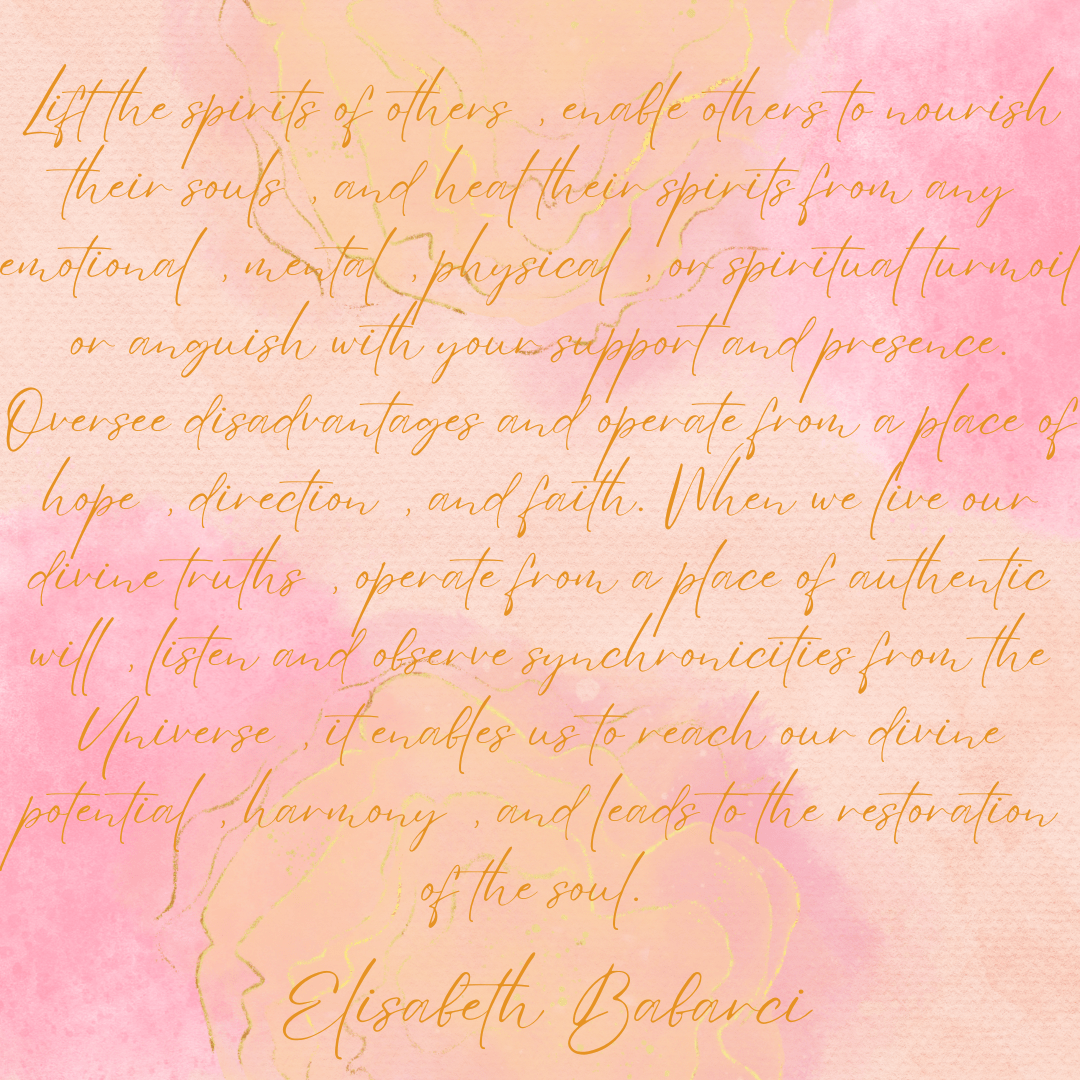 Lift the spirits of others , enable others to nourish
their souls , and heal their spirits from any
emotional , mental , physical , or spiritual turmoil
or anguish with your support and presence.
Oversee disadvantages and operate from a place of
hope , direction , and faith. When we live our
divine truths , operate from a place of authentic
will , listen and observe synchronicities from the
Universe , it enables us to reach our divine
potential , harmony , and leads to the restoration
of the soul.
Elisabeth Babarci